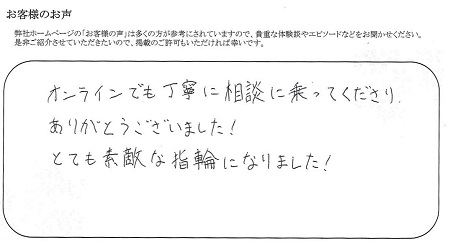 お客様のお声
弊社ホームページの「お客様の声」は多くの方が参考にされていますので、貴重な体験談やエピソードなどをお聞かせください。
是非ご紹介させていただきたいので、掲載のご許可もいただければ幸いです。
オンラインでも丁寧に相談に乗ってくださり、
ありがとうございました!
とても素敵な指輪になりました!